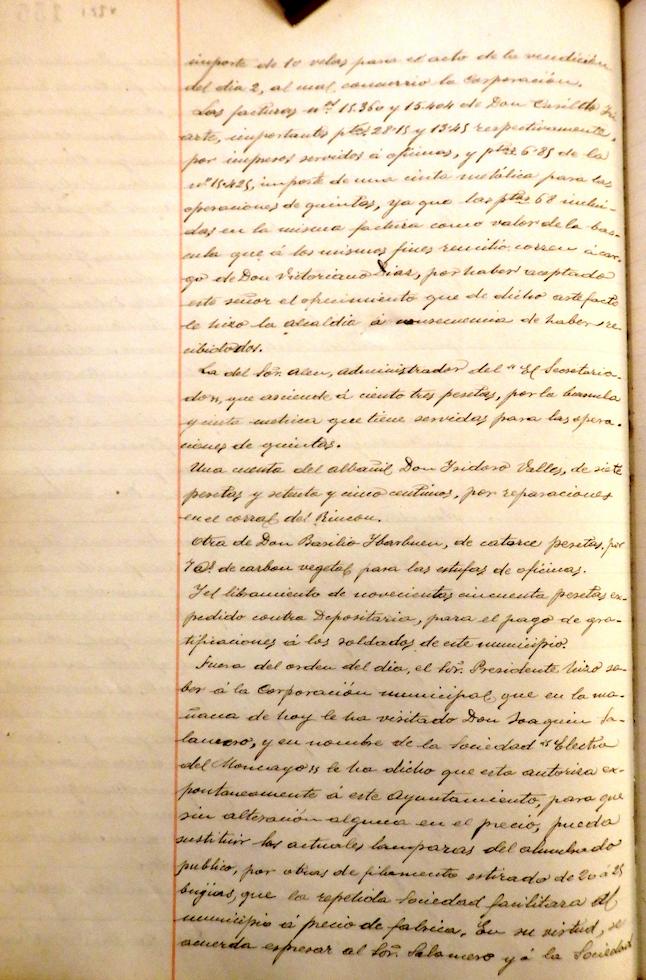 importe de 10 velas para el acto de la vendición
del dia 2, al cual concurrio la Corporación.
Las facturas nos 15.360 y 15.404 de Don Casildo Iri-
arte, importantes ptas 28'15 y 13'45 respectivamente,
por impresos servidos á oficinas, y ptas 6'85 de la
nº 15.425, importe de una cinta metálica para las
operaciones de quintas, ya que las ptas 68 inclui-
das en la misma factura como valor de la bas-
cula que á los mismos fines remitió, corren á car-
go de Don Victoriano Dias, por haber aceptado
este señor el ofrecimiento que de dicho artefacto
le hizo la alcaldia á consecuencia de haber re-
cibido dos.
La del Sor. Aleu, administrador del "El Secretaria-
do", que asciende á ciento tres pesetas, por la bascula
y cinta metrica que tiene servidas para las opera-
ciones de quintas.
Una cuenta del albañil Don Isidoro Valles, de siete
pesetas y setenta y cinco centimos, por reparaciones
en el corral del Rincon.
Otra de Don Basilio Ybarbuen, de catorce pesetas, por
de carbon vegetal para las estufas de oficinas.
Y el libramiento de novecientas cincuenta pesetas ex-
pedido contra Depositaria, para el pago de gra-
tificaciones á los soldados de este municipio.
Fuera del orden del dia, el Sor. Presidente hizo sa-
ber á la Corporación municipal, que en la ma-
ñana de hoy le ha visitado Don Joaquin Sa-
lamero, y en nombre de la Sociedad "Electra
del Moncayo" le ha dicho que esta autoriza ex-
pontaneamente á este Ayuntamiento, para que
sin alteración alguna en el precio, pueda
sustituir las actuales lamparas del alumbrado
publico, por otras de filamento estirado de 20 á 25
bugias, que la repetida Sociedad facilitara al
municipio á precio de fabrica. En su virtud, se
acuerda expresar al Sor. Salamero y á la Sociedad